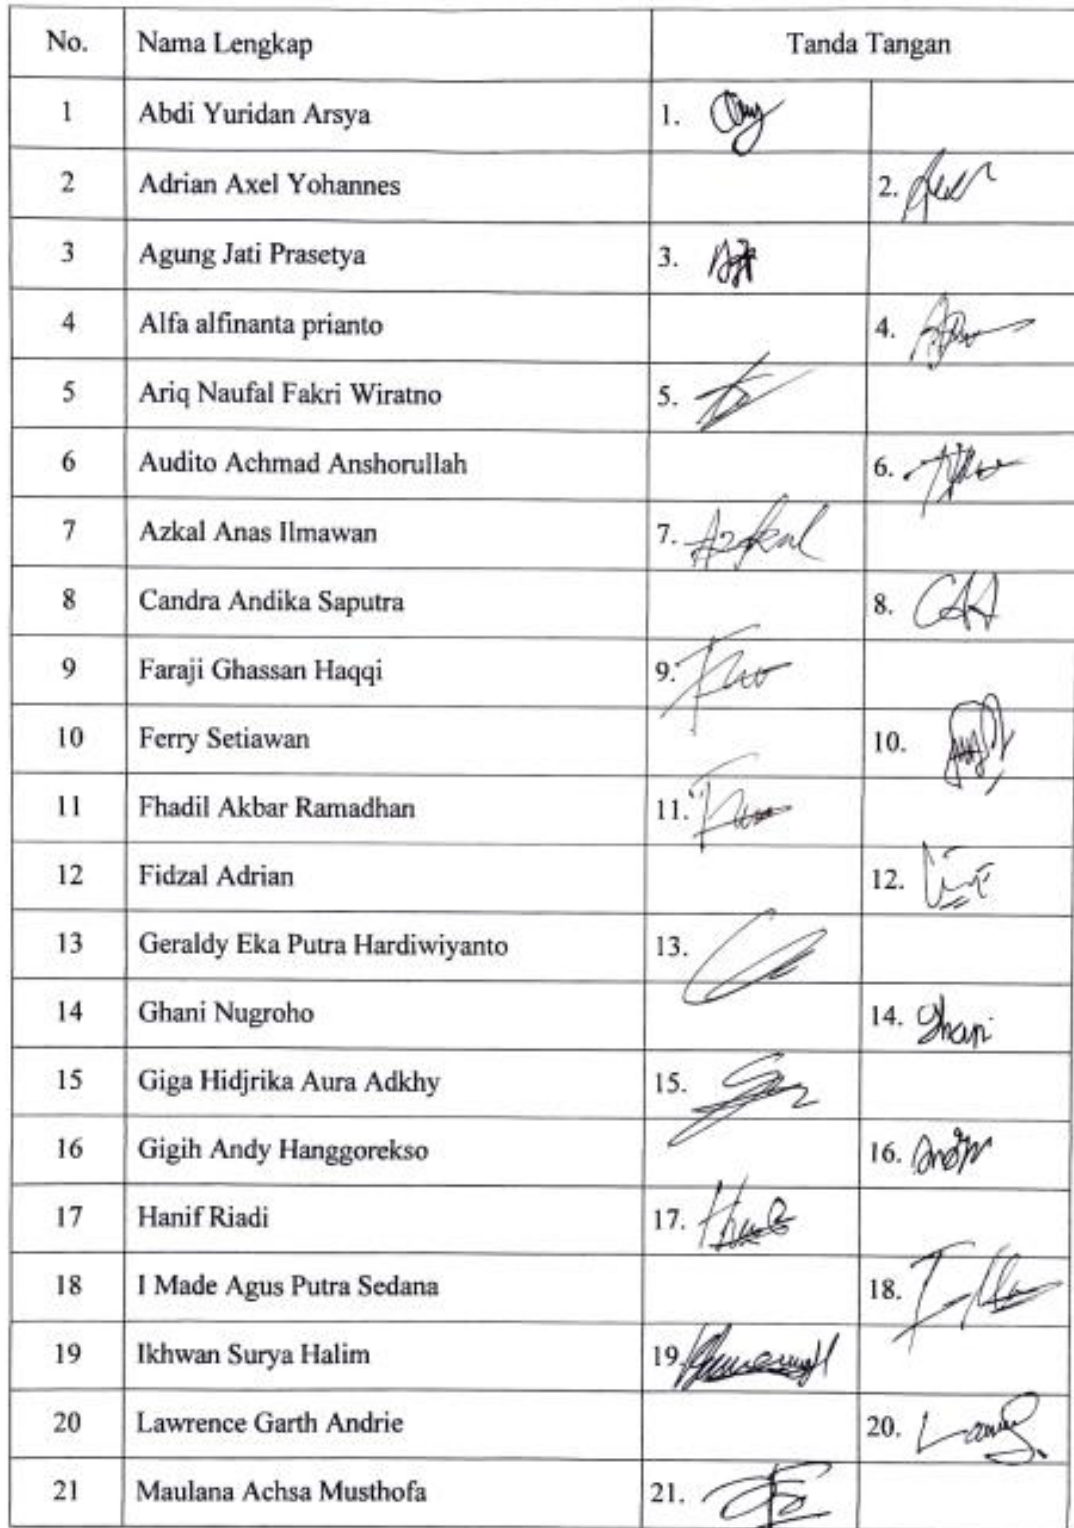 No. Nama Lengkap Tanda Tangan
1 Abdi Yuridan Arsya 1.
2 Adrian Axel Yohannes 2.
3 Agung Jati Prasetya 3.
4 Alfa alfinanta prianto 4.
5 Ariq Naufal Fakri Wiratno 5.
6 Audito Achmad Anshorullah 6.
7 Azkal Anas Ilmawan 7. Azkal
8 Candra Andika Saputra 8.
9 Faraji Ghassan Haqqi 9.
10 Ferry Setiawan 10.
11 Fhadil Akbar Ramadhan 11.
12 Fidzal Adrian 12.
13 Geraldy Eka Putra Hardiwiyanto 13.
14 Ghani Nugroho 14. Ghani
15 Giga Hidjrika Aura Adkhy 15.
16 Gigih Andy Hanggorekso 16.
17 Hanif Riadi 17.
18 I Made Agus Putra Sedana 18.
19 Ikhwan Surya Halim 19.
20 Lawrence Garth Andrie 20.
21 Maulana Achsa Musthofa 21.